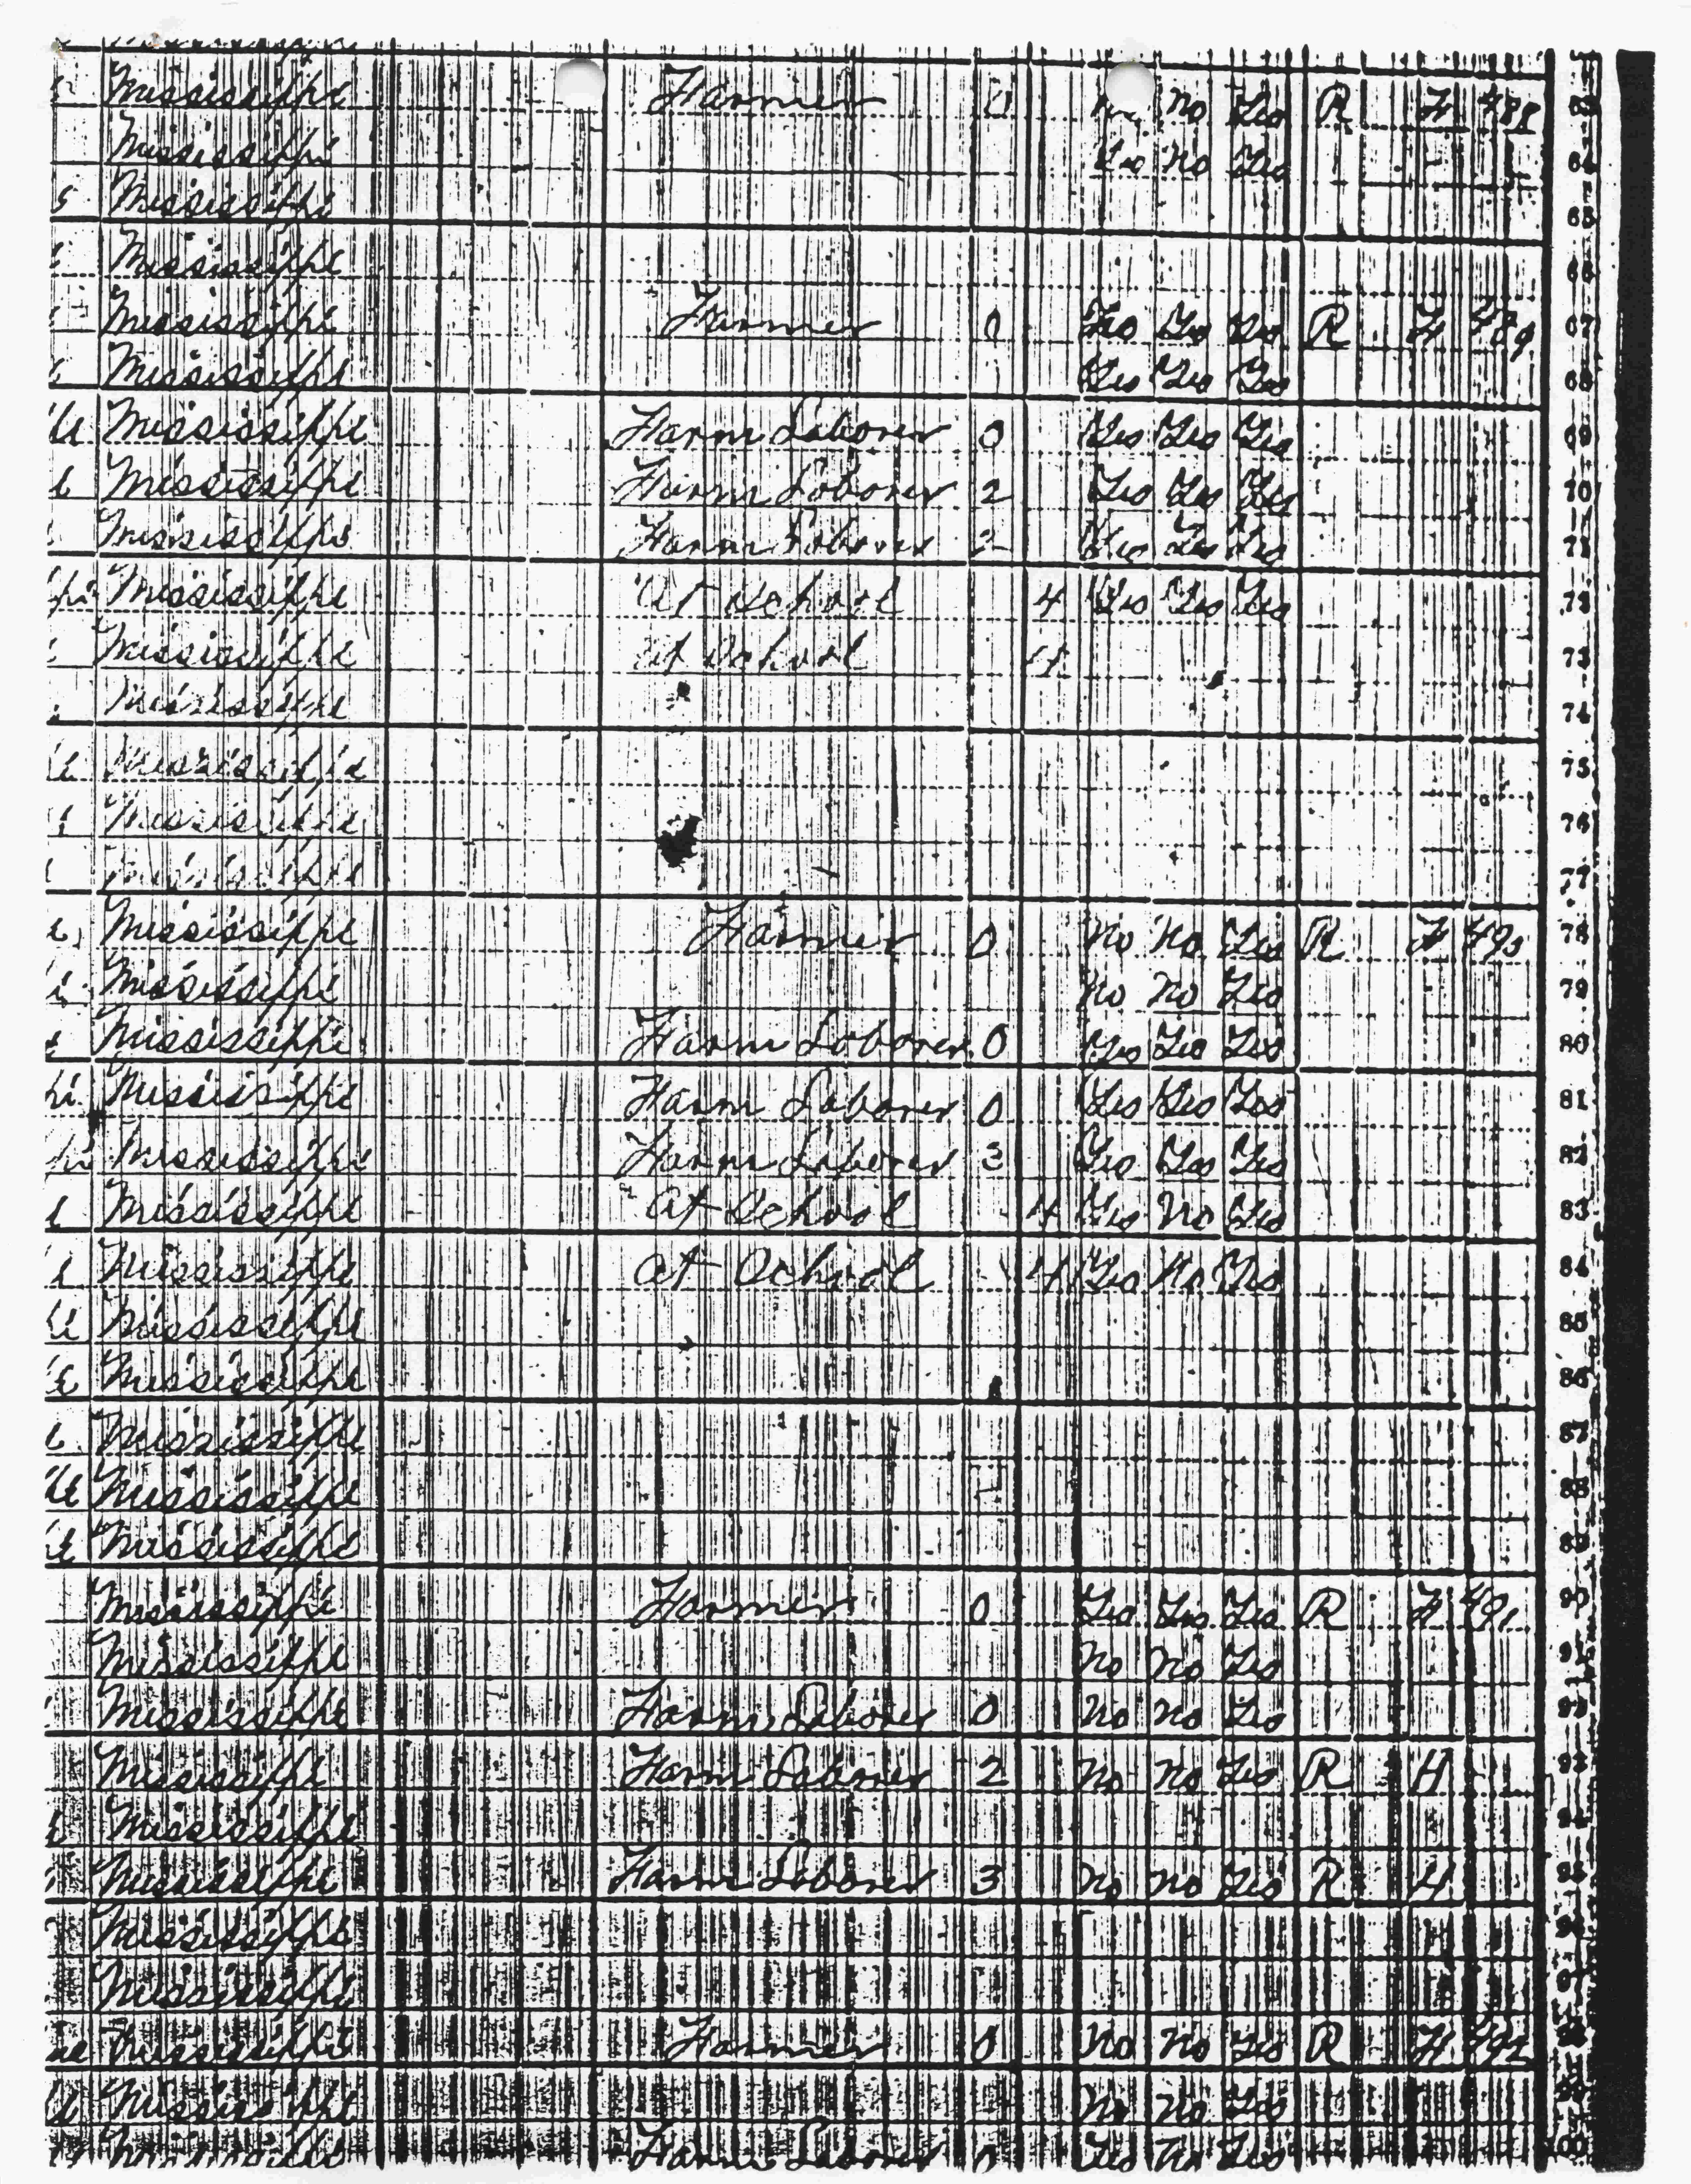 Mississippi Farmer 0 No Yes R F 488 63
Mississippi Yes No Yes 64
Mississippi 65
Mississippi 66
Mississippi Farmer 0 Yes Yes Yes R F 489 67
Mississippi Yes Yes Yes 68
Mississippi Farm Laborer 0 Yes Yes Yes 69
Mississippi Farm Laborer 2 Yes Yes Yes 70
Mississippi Farm Laborer 2 Yes Yes Yes 71
Mississippi At School 4 Yes Yes Yes 72
Mississippi At School 4 73
Mississippi 74
Mississippi 75
Mississippi 76
Mississippi 77
Mississippi Farmer 0 No No Yes R F 490 78
Mississippi No No Yes 79
Mississippi Farm Laborer 0 Yes Yes Yes 80
Mississippi Farm Laborer 0 Yes Yes Yes 81
Mississippi Farm Laborer 3 Yes Yes Yes 82
Mississippi At School 4 Yes No Yes 83
Mississippi At School 4 Yes No Yes 84
Mississippi 85
Mississippi 86
Mississippi 87
Mississippi 88
Mississippi 89
Mississippi Farmer 0 Yes Yes Yes R F 491 90
Mississippi No No Yes 91
Mississippi Farm Laborer 0 No No Yes 92
Mississippi Farm Laborer 2 No No Yes R H 93
Mississippi 94
Mississippi Farm Laborer 3 No No Yes R H 95
Mississippi 96
Mississippi 97
Mississippi Farmer 0 No No Yes R F 492 98
Mississippi No No Yes 99
Mississippi Farm Laborer 0 Yes No Yes 100